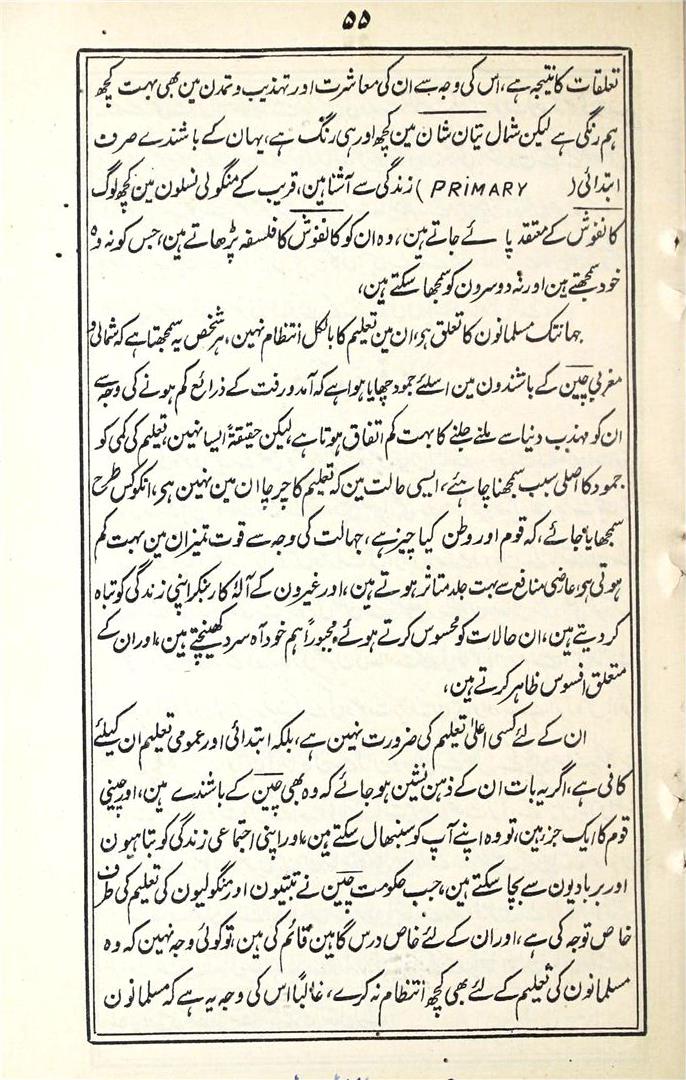 ۵۵
تعلقات کا نتیجہ ہے، اس کی وجہ سے ان کی معاشرت اور تہذیب و تمدن مین بھی بہت کچھ
ہم رنگی ہے لیکن شمال تیان شان مین کچھ اور ہی رنگ ہے، یہان کے باشندے صرف
ابتدائی (PRIMARY) زندگی سے آشنا ہین، قریب کے منگولی نسلون مین کچھ لوگ
کانفوش کے معتقد پائے جاتے ہین، وہ ان کو کانفوش کا فلسفہ پڑھاتے ہین، جس کو نہ وہ
خود سمجھتے ہین اور نہ دوسرون کو سمجھا سکتے ہین،
جہانتک مسلمانون کا تعلق ہو، ان مین تعلیم کا بالکل انتظام نہین، ہر شخص یہ سمجھتا ہے کہ شمالی و
مغربی چین کے باشندون مین اسلئے جمود چھایا ہوا ہے کہ آمد و رفت کے ذرائع کم ہونے کی وجہ سے
ان کو مہذب دنیا سے ملنے جلنے کا بہت کم اتفاق ہوتا ہے، لیکن حقیقۃً ایسا نہین، تعلیم کی کمی کو
جمود کا اصلی سبب سمجھنا چاہئے، ایسی حالت مین کہ تعلیم کا چرچا ان مین نہین ہو، انکو کس طرح
سمجھایا جائے، کہ قوم اور وطن کیا چیز ہے، جہالت کی وجہ سے قوت تمیز ان مین بہت کم
ہوتی ہو، عارضی منافع سے بہت جلد متاثر ہوتے ہین، اور غیرون کے آلۂ کار بنکر اپنی زندگی کو تباہ
کر دیتے ہین، ان حالات کو محسوس کرتے ہوئے مجبوراً ہم خود آہ سرد کھینچتے ہین، اور ان کے
متعلق افسوس ظاہر کرتے ہین،
ان کے لئے کسی اعلیٰ تعلیم کی ضرورت نہین ہے، بلکہ ابتدائی اور عمومی تعلیم ان کیلئے
کافی ہے، اگر یہ بات ان کے ذہن نشین ہو جائے کہ وہ بھی چین کے باشندے ہین، اور چینی
قوم کا ایک جز ہین، تو وہ اپنے آپ کو سنبھال سکتے ہین، اور اپنی اجتماعی زندگی کو تباہیون
اور بربادیون سے بچا سکتے ہین، جب حکومت چین نے تبتیون اور منگولیون کی تعلیم کی طرف
خاص توجہ کی ہے، اور ان کے لئے خاص درس گاہین قائم کی ہین، تو کوئی وجہ نہین کہ وہ
مسلمانون کی تعلیم کے لئے بھی کچھ انتظام نہ کرے، غالباً اس کی وجہ یہ ہے کہ مسلمانون